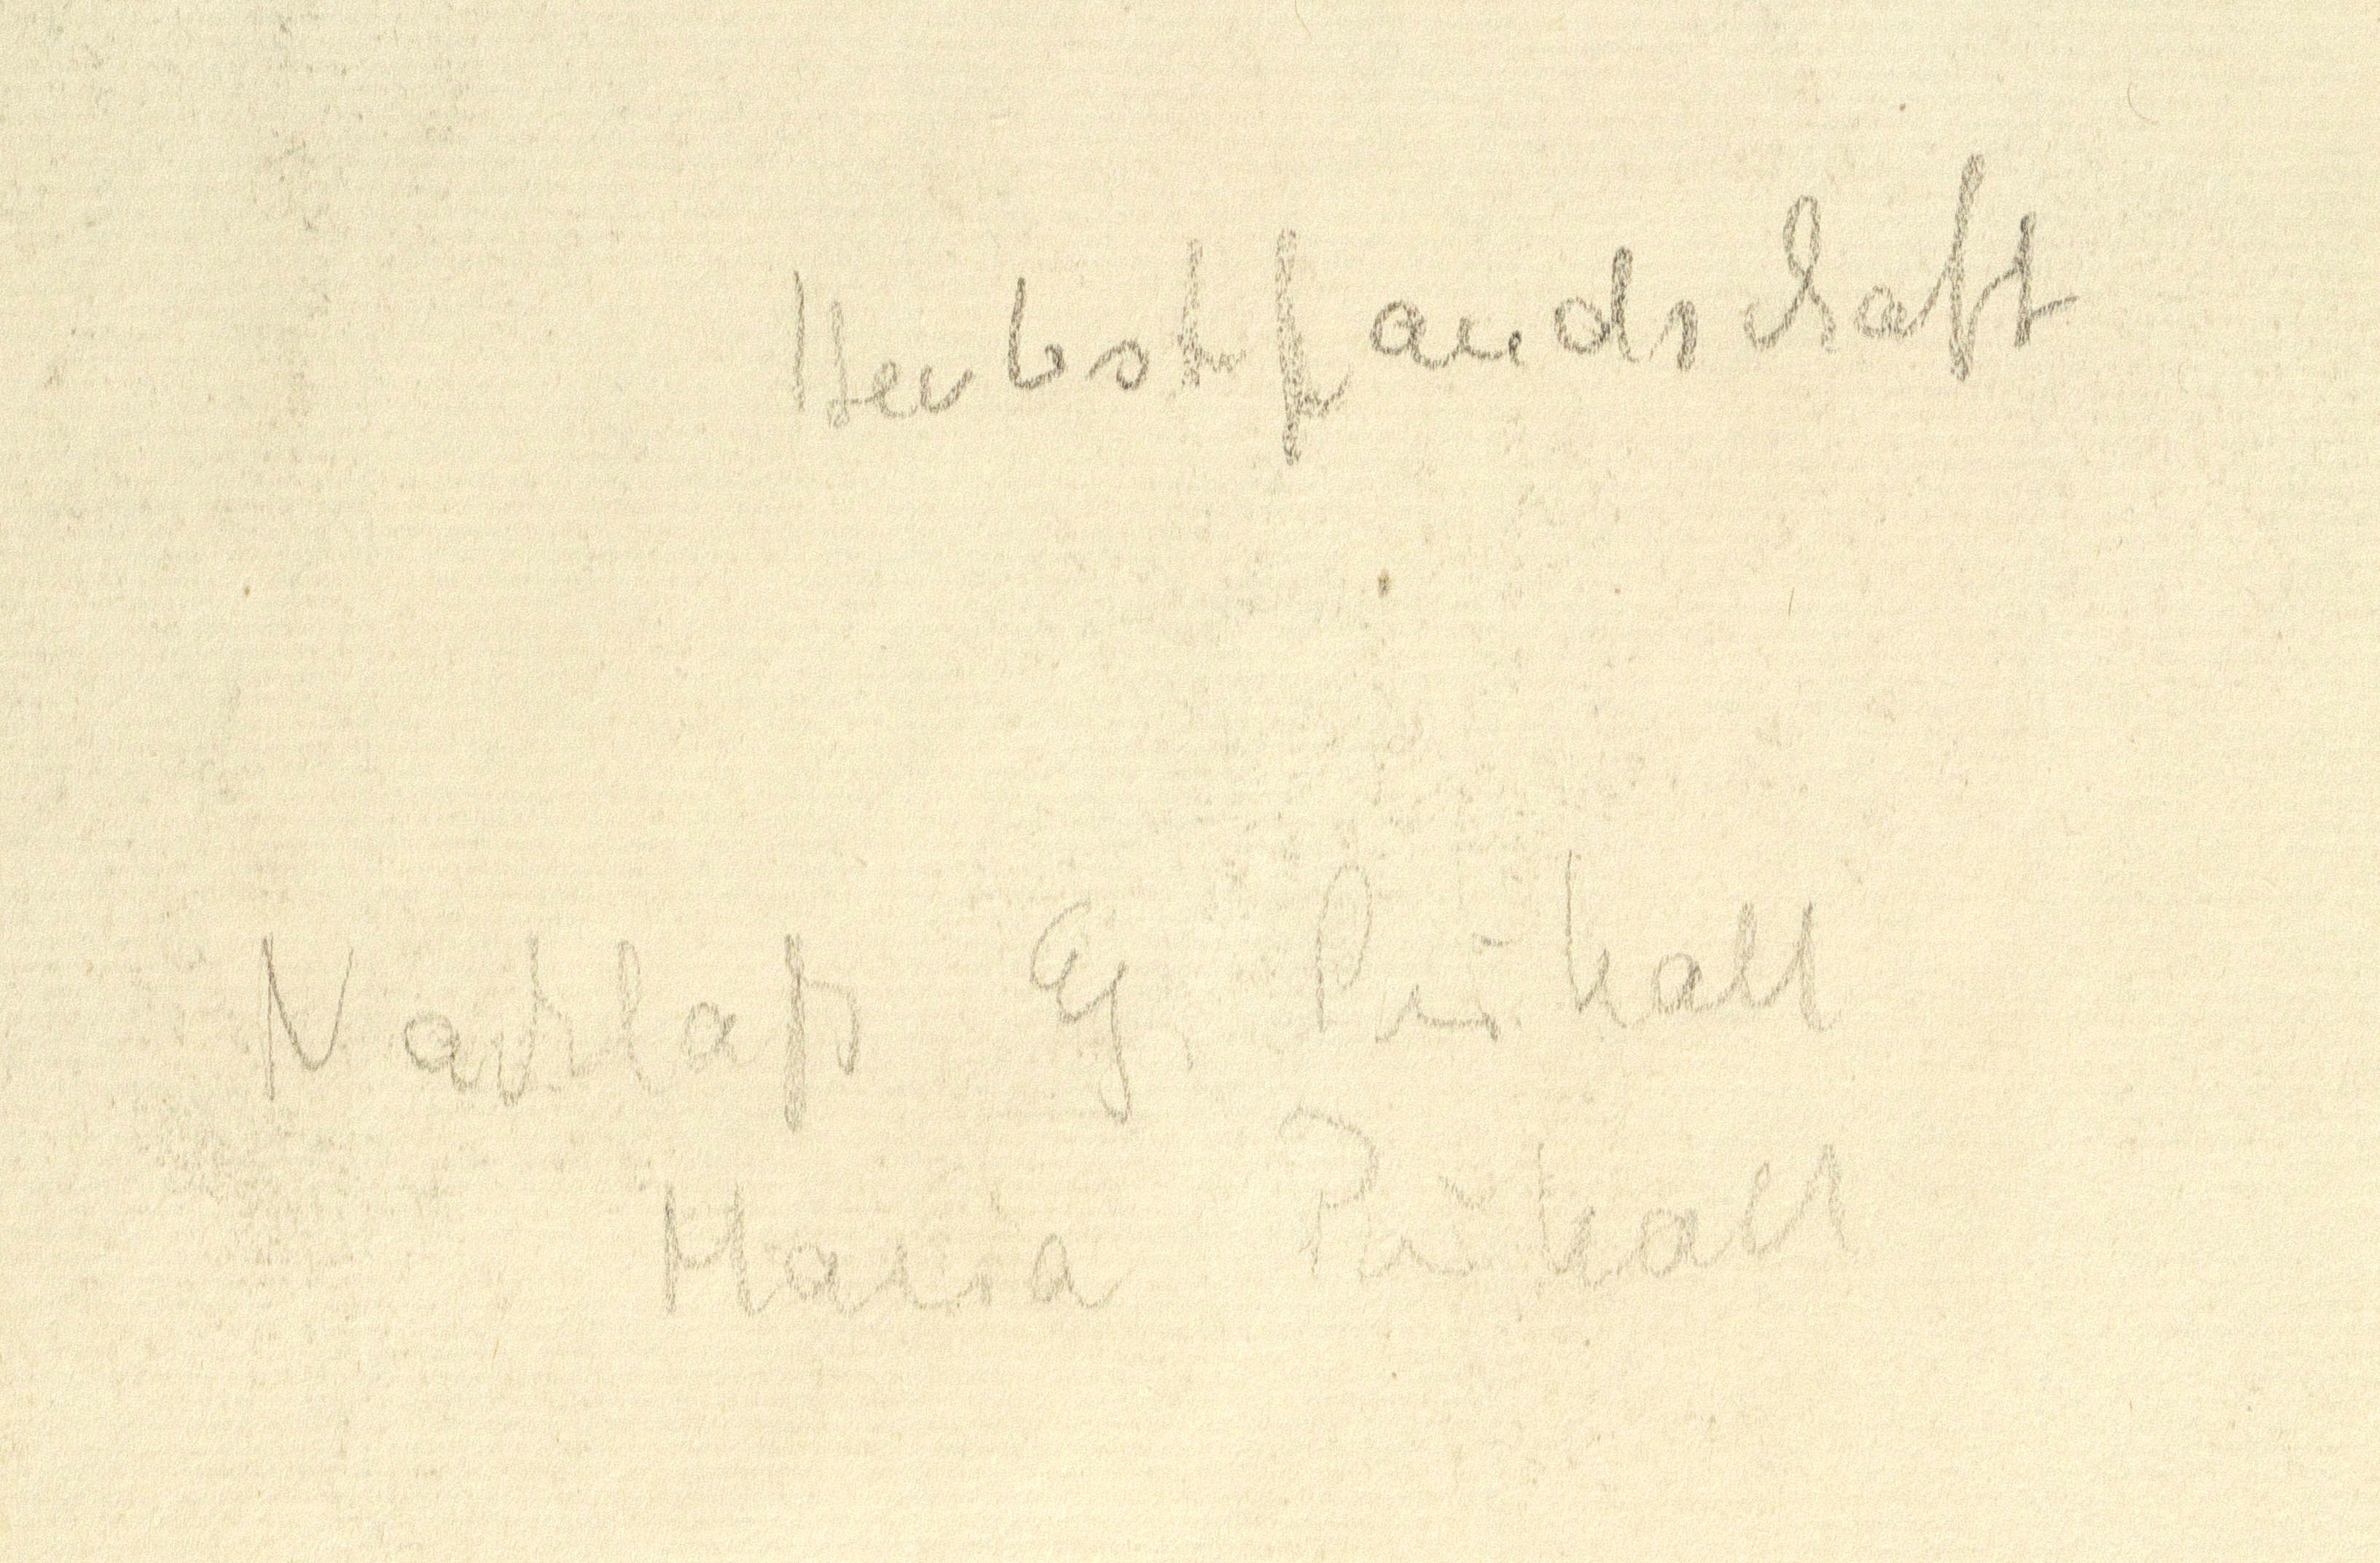 Herbstlandschaft
Nachlaß G. Prihall
Maria Prihall